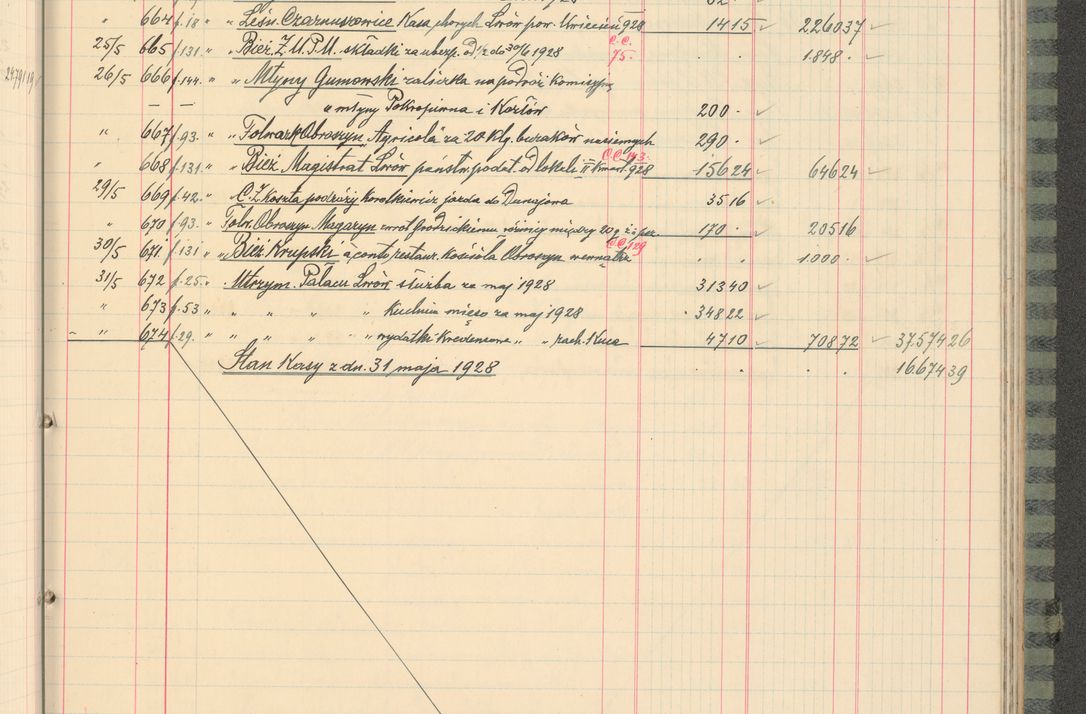 " 664 f.18 " " Leśn. Czarnuszowice Kasa chorych Lwów pow. 928 1415 226037
25/5 665 f.131 " Bież. Z.U.P.U. składki za ubezp. od 1/2 do 30/6 1928 C.C. 75. . . 1.848.
26/5 666 f.144 " " Młyny Gumowski zaliczka na podróż komisyjną
2479/19
— — " młyny Pokropiwna i Kozłów 200.
" 667 f.93. " " Folwark Obroszyn, Agricola za 20 klg. buraków nasiennych 290.
C.C. 143.
" 668 f.131 " " Bież. Magistrat Lwów państw. podat. od lokali II kwart. 928 15624 64624
29/5 669 f.42. " C.Z. Koszta podróży jazda do Dunajowa 3516
" 670 f.93. " Folw. Obroszyn Magazyn zwrot różnicy między 170. 20516
C.C. 129
30/5 671 f.131 " " Bież. Krupski à conto restaur. kościoła Obroszyn wewnątrz . . 1.000.
31/5 672 f.25. " Utrzym. Pałacu Lwów służba za maj 1928 31340
" 673 f.53 " " " " " kuchnia mięso za maj 1928 34822
" 674 f.29. " " " " " wydatki Kredensowe " " rach. Kuca 4710 70872 37.57426
Stan Kasy z dn. 31 maja 1928 . . . . 16.67439